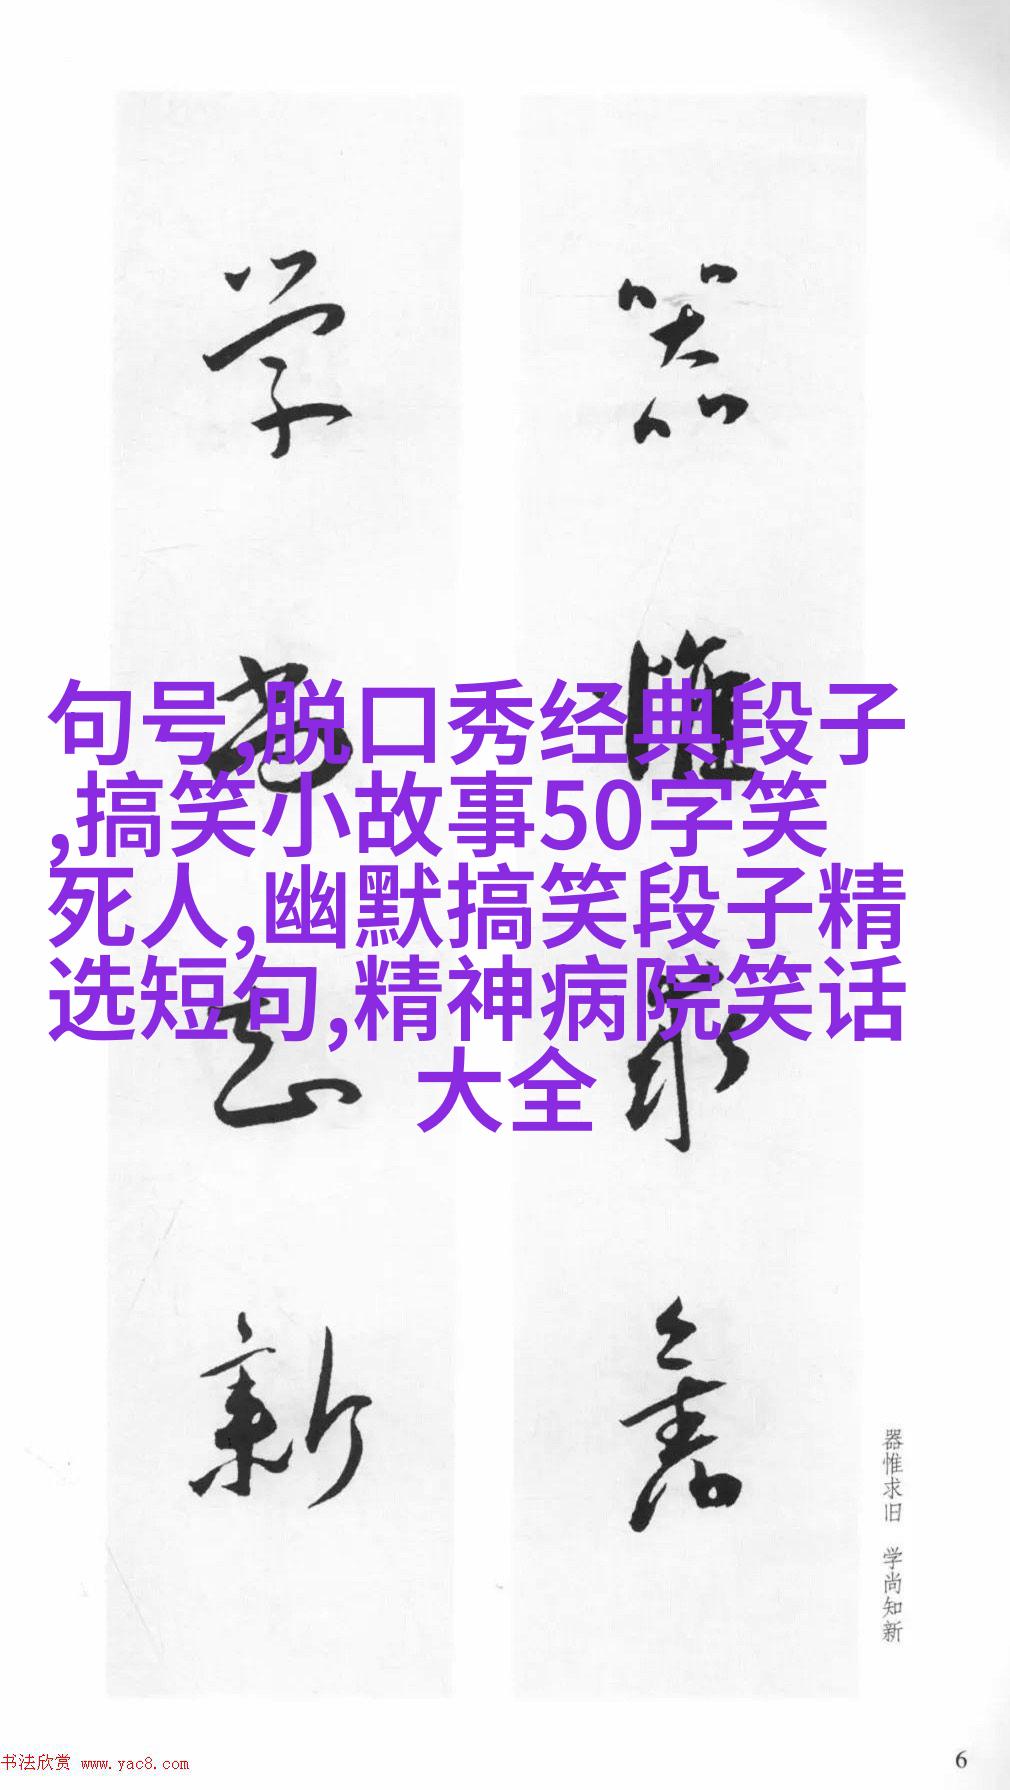 句号,脱口秀经典段子
,搞笑小故事50字笑
死人,幽默搞笑段子精
选短句,精神病院笑话
大全
器惟求舊
学尚知新
器惟求旧 学尚知新
书法欣赏 www.yac8.com
6